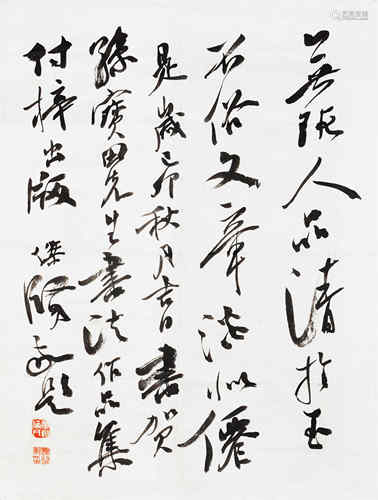 無瑕人品清於玉
不俗文章淡似僊
是歲己卯秋月吉日書賀
孫寶田先生書法作品集
付梓出版 傑賢敬題